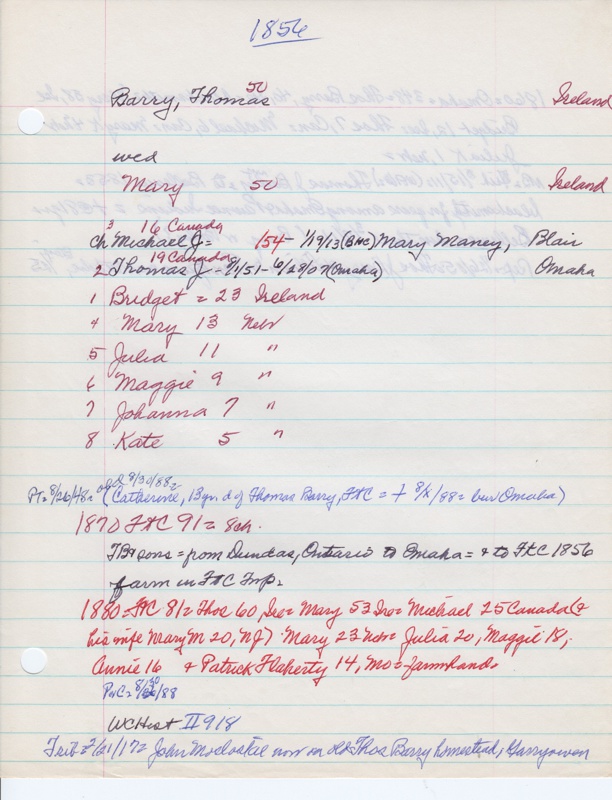 1856
Barry, Thomas 50 Ireland
wed
Mary 50 Ireland
3 16 Canada
ch Michael J= 1/54 - 1/19/13 (BHC) Mary Maney, Blair
19 Canada
2 Thomas J - 8/1/51 - 6/28/0 (Omaha) Omaha
1 Bridget = 23 Ireland
4 Mary 13 Nebr
5 Julia 11 "
6 Maggie 9 "
7 Johanna 7 "
8 Kate 5 "
8/30/88=
Pt= 8/26/48= (Catherine, 13 yr d of Thomas Barry, FtC = † 8/ /88= bur Omaha)
1870 FtC 91= 8ch.
TB & sons = from Dundas, Ontario to Omaha = & to FtC 1856
farm in FtC Twp=
1880 = FtC 81= Thos 60, Ire= Mary 53 Ire= Michael 25 Canada (&
his wife Mary M 20, NJ) Mary 23 Nebr= Julia 20, Maggie 18,
Annie 16 & Patrick Flaherty 14, Mo= farmhand=
8/30/88
WCHist II 918
Trib= 2/21/17= John now on old Thos Barry homestead, Garryowen